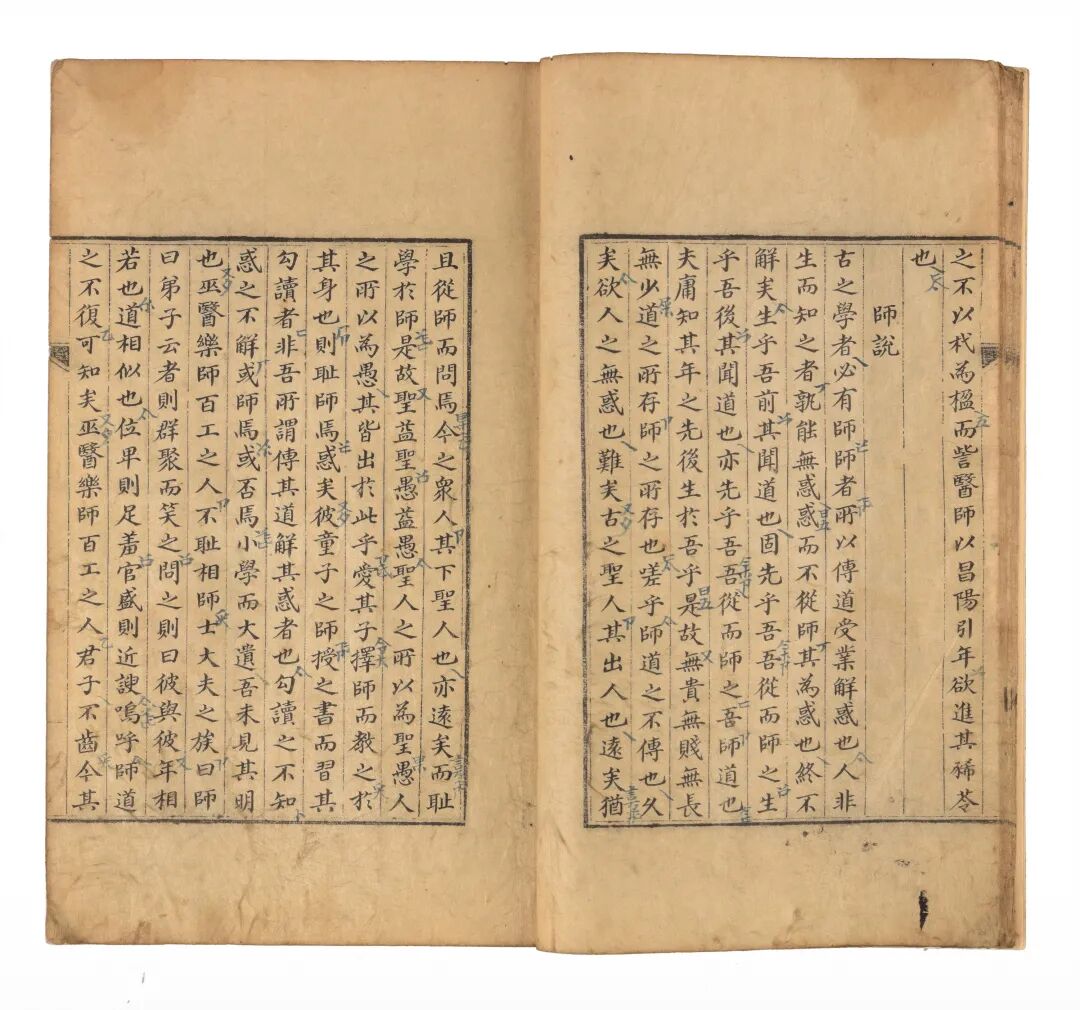 之不以杙為楹而訾醫師以昌陽引年欲進其稀苓
也
師說
古之學者必有師師者所以傳道受業解惑也人非
生而知之者孰能無惑惑而不從師其為惑也終不
解矣生乎吾前其聞道也固先乎吾吾從而師之生
乎吾後其聞道也亦先乎吾吾從而師之吾師道也
夫庸知其年之先後生於吾乎是故無貴無賤無長
無少道之所存師之所存也嗟乎師道之不傳也久
矣欲人之無惑也難矣古之聖人其出人也遠矣猶
且從師而問焉今之衆人其下聖人也亦遠矣而耻
學於師是故聖益聖愚益愚聖人之所以為聖愚人
之所以為愚其皆出於此乎愛其子擇師而教之於
其身也則耻師焉惑矣彼童子之師授之書而習其
勾讀者非吾所謂傳其道解其惑者也勾讀之不知
惑之不解或師焉或否焉小學而大遺吾未見其明
也巫醫樂師百工之人不耻相師士大夫之族曰師
曰弟子云者則群聚而笑之問之則曰彼與彼年相
若也道相似也位卑則足羞官盛則近諛嗚呼師道
之不復可知矣巫醫樂師百工之人君子不齒今其